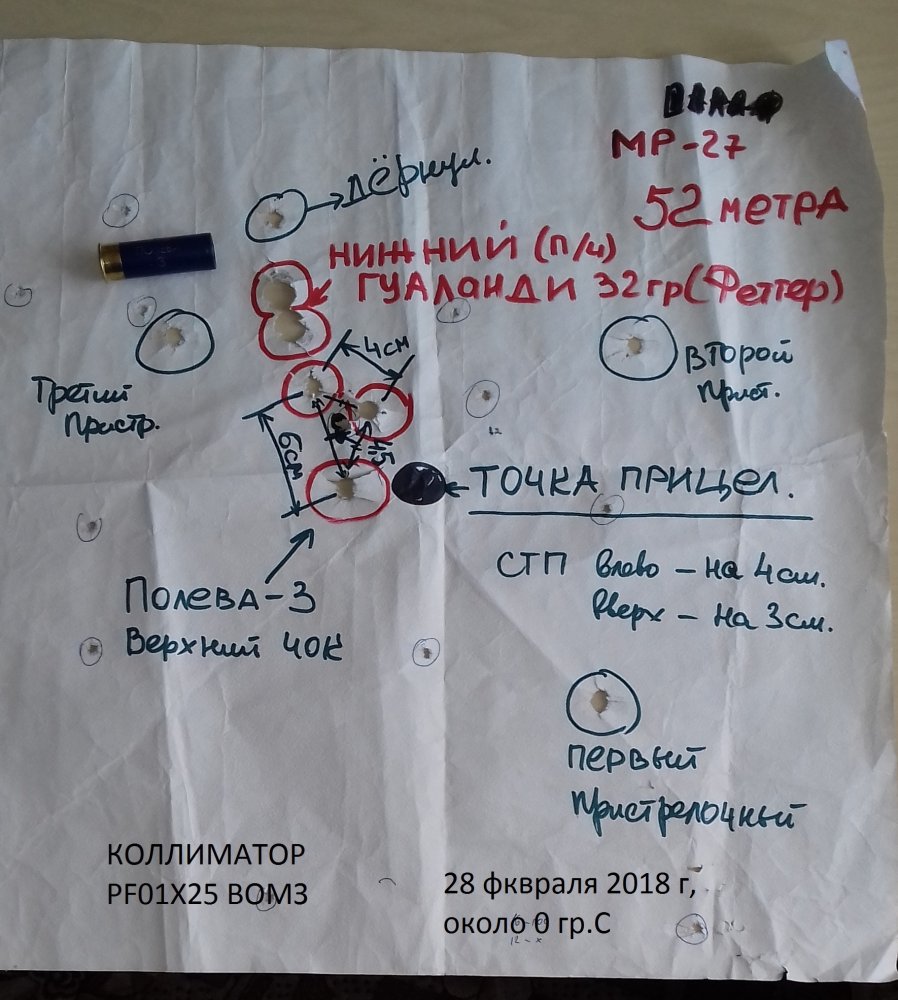 МР-27
52 МЕТРА
ДЁРНУЛ.
НИЖНИЙ (П/Ч)
ГУАЛАНДИ 32гр(Феттер)
4см
ВТОРОЙ
Прист.
Третий
Пристр.
6см
4,5
ТОЧКА ПРИЦЕЛ.
СТП влево - на 4см.
Вверх - на 3см.
Полева-3
Верхний ЧОК
первый
пристрелочный
КОЛЛИМАТОР
PF01X25 ВОМЗ
28 фквраля 2018 г,
около 0 гр.С